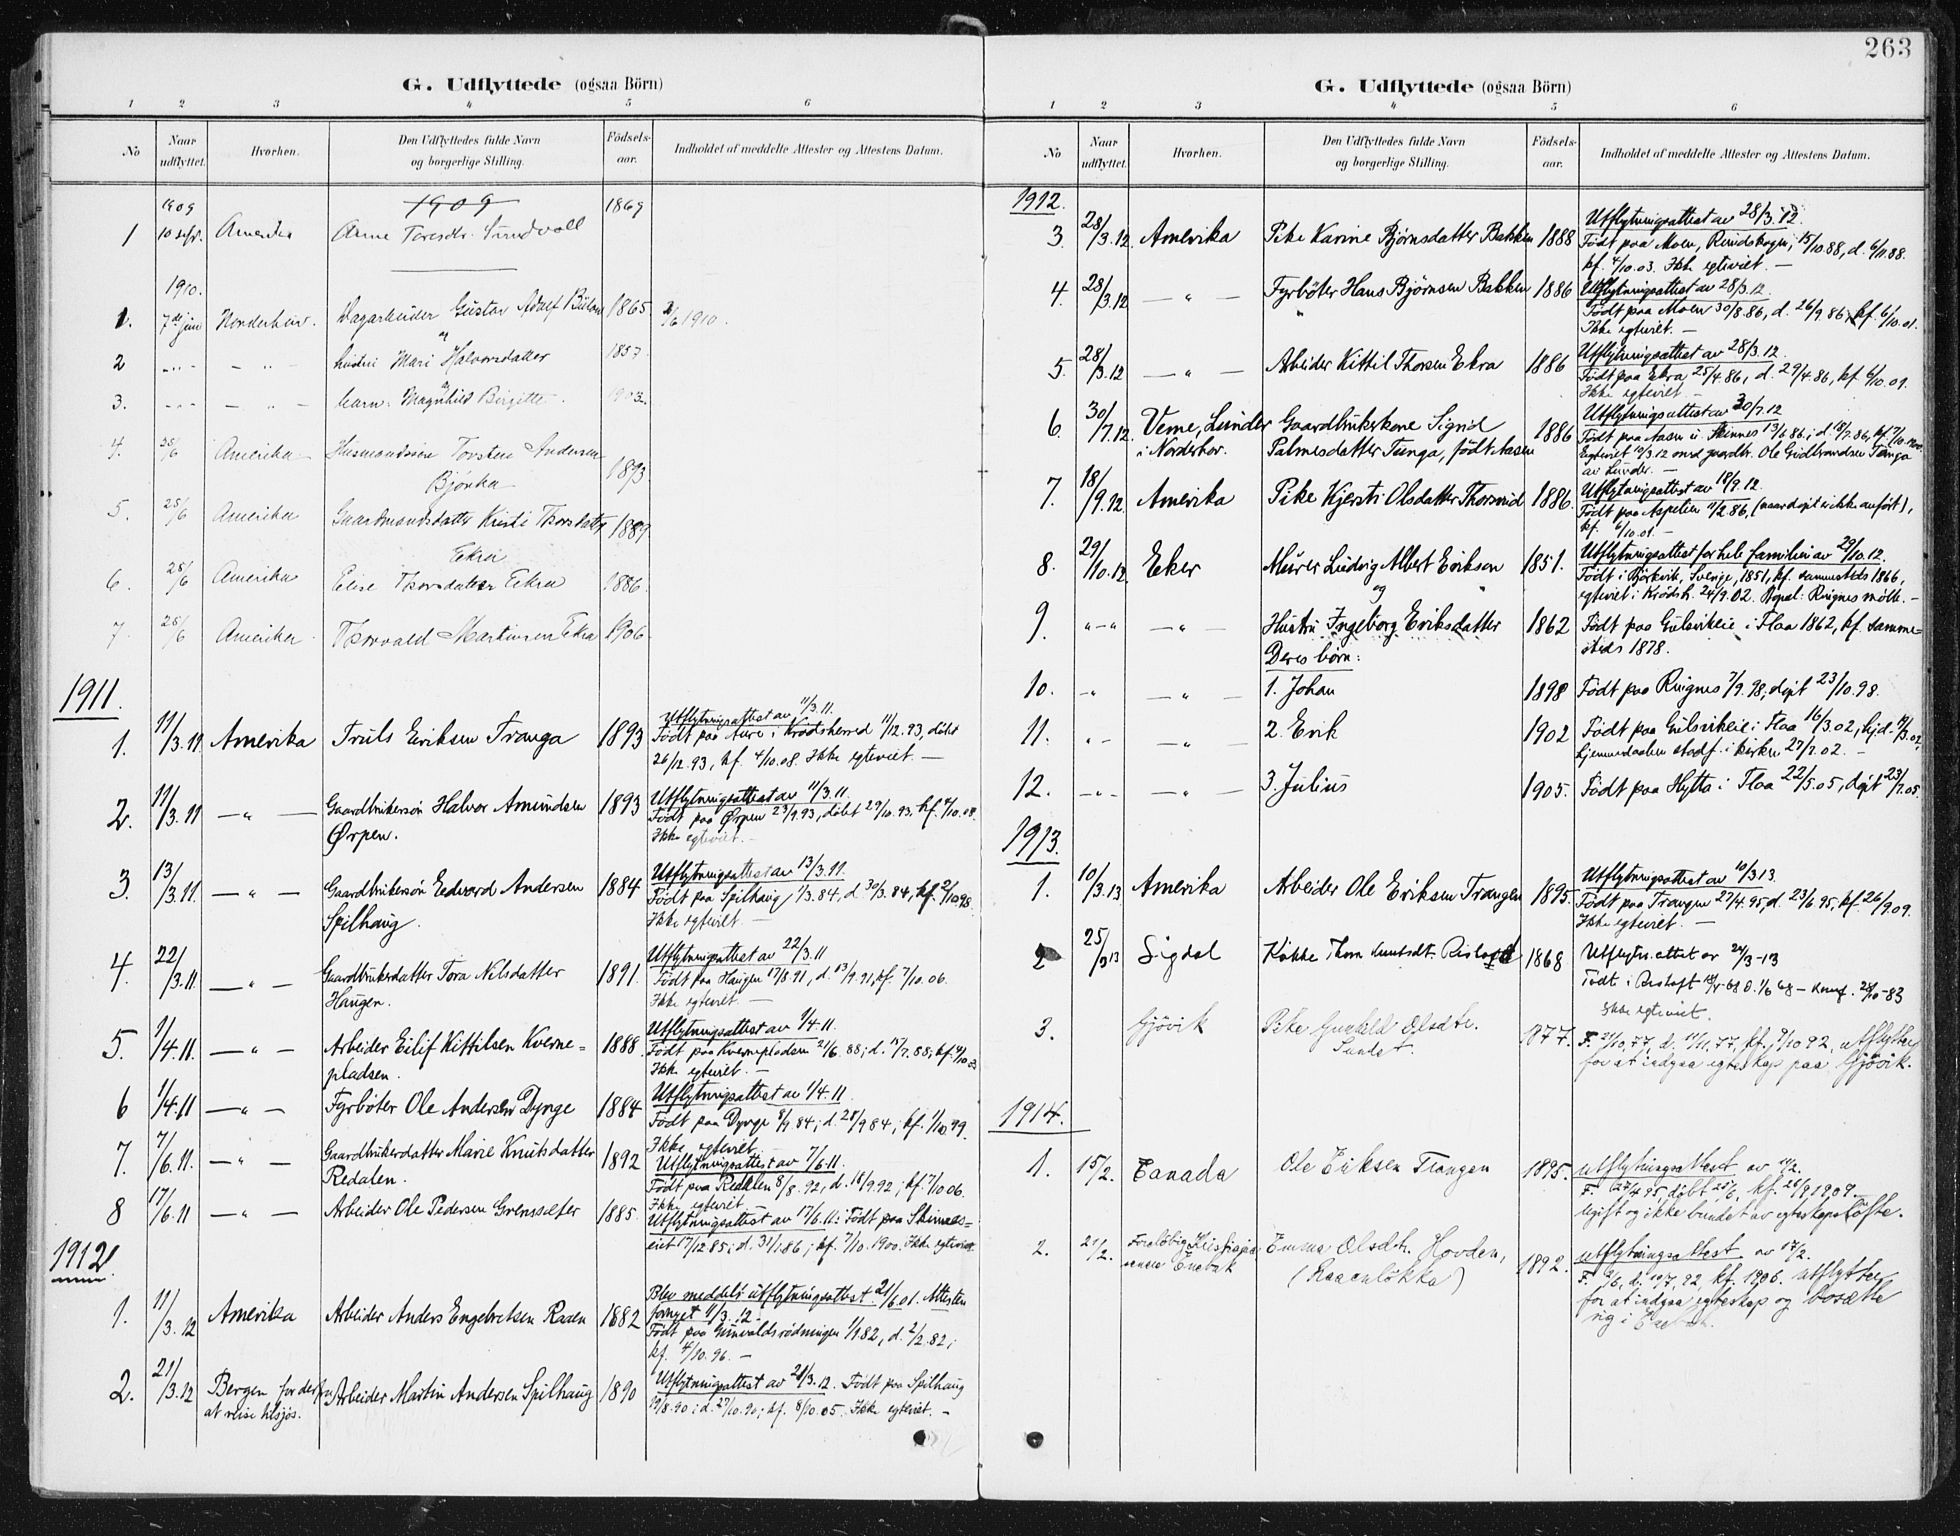 263
G. Udflyttede (ogsaa Börn)
1 2 3 4 5 6
No
Naar udflyttet.
Hvorhen.
Den Udflyttedes fulde Navn
og borgerlige Stilling.
Födsels-aar.
Indholdet af meddelte Attester og Attestens Datum.
1909
1 1909 10 sept. Amerika Anne Toresdr. Sundvoll 1869
1910.
1. 7de juni Nonderhov. Dagarbeider Gustav Adolf 1865 2/6 1910.
2 " " hustru Mari Halvorsdatter 1857.
3. " " barn: Magnhild Birgitte. 1903.
4. 25/6 Amerika Husmandssøn Torsten Andersen
Bjørka 1893
5. 25/6 Amerika Gaardmandsdatter Kristi Thorsdatter 1889
Ekra
6. 25/6 Amerika Elise Thorsdatter Ekra 1886.
7. 25/6 Amerika Thorvald Martinsen Ekra 1906
1911.
1. 11/3.11 Amerika Truls Eriksen Tranga 1893 Utflytningsattest av 11/3.11.
Født paa Aure i Krødsherred 11/12.93, døbt
26/12.93, kf. 4/10.08. Ikke egteviet. —
2. 11/3.11 — " — Gaardbrukersøn Halvor Amundsen
Ørpen. 1893 Utflytningsattest av 11/3.11.
Født paa Ørpen 23/9.93, døbt 29/10.93, kf. 4/10.08.
Ikke egteviet. —
3. 13/3.11. — " — Gaardbrukersøn Edvard Andersen
Spilhaug. 1884 Utflytningsattest av 13/3.11.
Født paa Spilhaug 1/3.84, d. 30/3.84, kf. 2/10.98.
Ikke egteviet. —
4. 22/3.11. — " — Gaardbrukerdatter Tora Nilsdatter
Haugen. 1891. Utflytningsattest av 22/3.11
Født paa Haugen 17/8.91, d. 13/9.91, kf. 7/10.06.
Ikke egteviet. —
5. 1/4.11. — " — Arbeider Eilif Kittilsen Kverne=
pladsen. 1888. Utflytningsattest av 1/4.11.
Født paa Kvernepladsen 21/6.88; d. 15/7.88; kf. 4/10.03
Ikke egteviet. —
6 1/4.11 — " — Fyrbøter Ole Andersen Dynge 1884 Utflytningsattest av 1/4.11.
Født paa Dynge 8/9.84; d. 28/9 84; kf. 1/10.99.
Ikke egteviet. —
7. 7/6.11. — " — Gaardbrukerdatter Marie Knutsdatter
Redalen. 1892 Utflytningsattest av 7/6.11.
Født paa Redalen 8/8.92, d. 18/9.92, kf. 7/10.06.
Ikke egteviet. —
8 17/6.11 — " — Arbeider Ole Pedersen Grenssæter 1885. Utflytningsattest av 17/6.11: Født paa Skinnes=
eiet 17/12.85; d. 31/1.86; kf. 7/10.1900. Ikke egteviet.
1912.
1. 11/3.12 Amerika Arbeider Anders Engebretsen Raaen 1882 Blev meddelt utflytningsattest 21/6.01. Attesten
fornyet 11/3.12.
Født paa Gunvaldsrødningen 1/1.82, d. 2/2.82;
kf. 4/10.96. —
2. 21/3.12 Bergen for derfra
at reise tilsjøs. Arbeider Martin Andersen Spilhaug 1890 Utflytningsattest av 21/3.12. Født paa Spilhaug
19/8.90; d. 27/10.90; kf. 8/10.05. Ikke egteviet. —
G. Udflyttede (ogsaa Börn)
1 2 3 4 5 6
No
Naar udflyttet.
Hvorhen.
Den Udflyttedes fulde Navn
og borgerlige Stilling.
Födsels-aar.
Indholdet af meddelte Attester og Attestens Datum.
1912.
3. 28/3.12 Amerika Pike Karine Bjørnsdatter Bakken 1888 Utflytningsattest av 28/3.12.
Født paa Moen, Rundskogen, 15/10.88, d. 6/11.88.
kf. 4/10.03. Ikke egteviet. —
4. 28/3.12 — " — Fyrbøter Hans Bjørnsen Bakken 1886 Utflytningsattest av 28/3.12
Født paa Moen 30/8.86, d. 26/9.86, kf. 6/10.01.
Ikke egteviet. —
5. 28/3.12 — " — Arbeider Kittil Thorsen Ekra 1886 Utflytningsattest av 28/3.12.
Født paa Ekra 25/4.86, d. 29/4.86, kf. 6/10.01.
Ikke egteviet. —
6. 30/7.12. Veme, Lunder
i Norderhov. Gaardbrukerkone Sigrid
Palmesdatter Tunga, født Aasen 1886 Utflytningsattest av 30/7.12
Født paa Aasen u. Skinnes 13/6.86; d. 18/7.86, kf. 7/10.
Egteviet 12/3.12 med gaardbr. Ole Gudbrandsen Tunga
av Lunder. —
7. 18/9.12. Amerika Pike Kjersti Olsdatter Thorsrud 1886. Utflytningsattest av 18/9.12.
Født paa Aspelien 11/2.86, (naar døpt er ikke anført),
kf. 6/10.01. —
8. 29/10.12 Eker Murer Ludvig Albert Erikson
og 1851. Utflytningsattest for hele familien av 29/10.12.
Født i Björkvik, Sverige, 1851, kf. sammesteds 1866,
egteviet i Krødsh. 24/9.02. Bopæl: Ringnes mølle. —
9. " — " — Hustru Ingeborg Eriksdatter 1862 Født paa Gulsvikeie i Flaa 1862, kf. samme=
steds 1878.
Deres børn:
10. " — " — 1. Johan 1898 Født paa Ringnes 7/9.98, døpt 23/10.98.
11. " — " — 2. Erik 1902 Født paa Gulsvikeie i Flaa 16/3.02, hjd.
hjemmedaaben stadf. i kirken 27/7.02. —
12. " — " — 3. Julius 1905. Født paa Hytta i Flaa 22/5.05, døpt 23/7.05.
1913.
1. 10/3.13 Amerika Arbeider Ole Eriksen Trangen 1895. Utflytningsattest av 10/3.13.
Født paa Trangen 27/4.95, d. 23/6.95, kf. 26/9.09.
Ikke egteviet. —
2 25/3 13 Sigdal Kokke Thora Knutsdt. Ristoft 1868 Utflytn. attest av 24/3-13
Født i Ristoft 18/4-68 D. 1/6 68 — Konf. 28/10-83
Ikke egteviet.
3. Gjövik Pike Gunhild Olsdtr.
Sundet. 1877. F. 21/10.77, d. 11/11.77, kf. 9/10 92, utflytter
for at indgaa egteskap paa Gjövik.
1914.
1. 15/2. Canada Ole Eriksen Trangen 1895. Utflytningsattest av 14/2.
F. 27/4 95, døbt 23/6, kf. 26/9 1909.
Ugift og ikke bundet av egteskapsløfte.
2. 21/2. Foreløbig Kristiania
senere Enebak Emma Olsdtr. Hovden,
(Raaenløkka) 1892. Utflytningsattest av 17/2.
F. 9/6, d. 10/7. 92, kf. 1906. Utflytter
for at indgaa egteskap og bosætte
sig i Enebak.